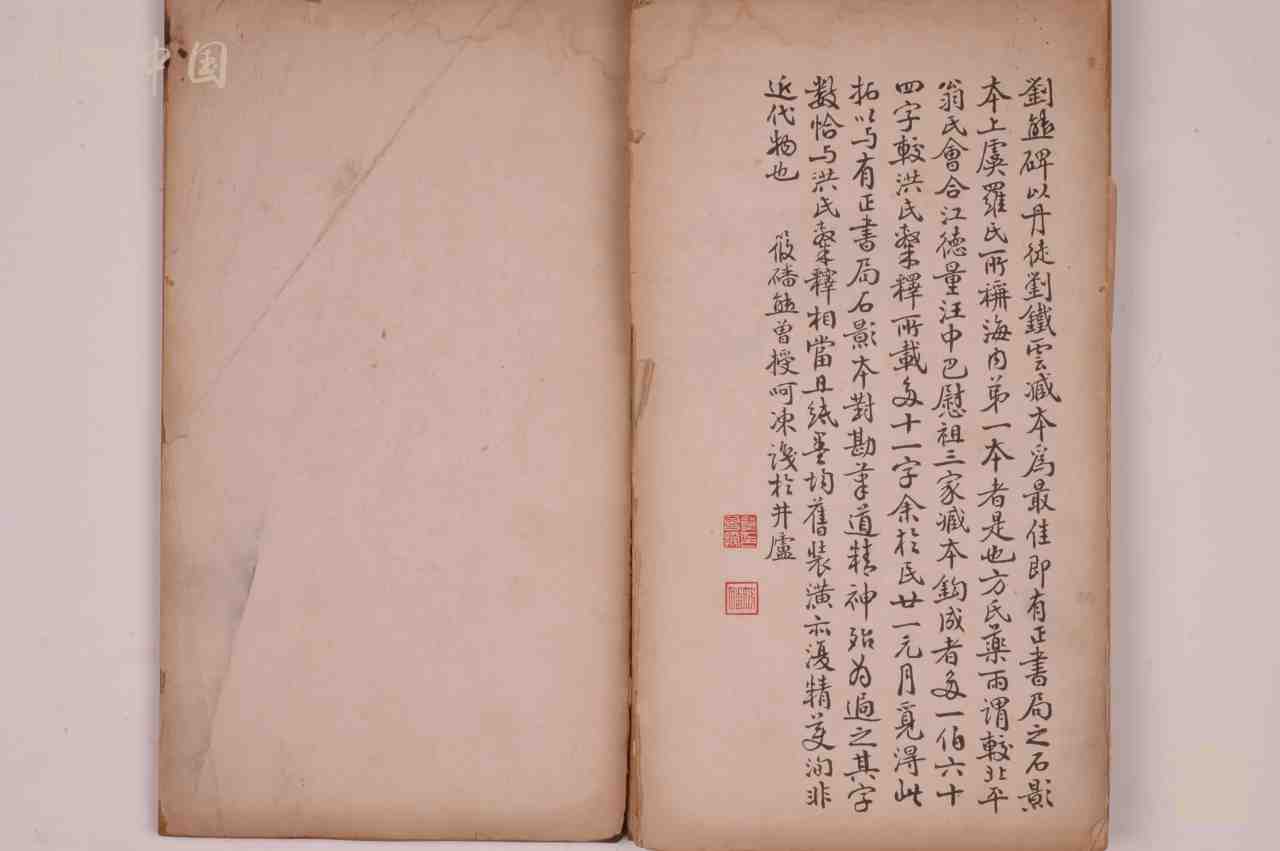 劉熊碑以丹徒劉鐵雲臧本爲最佳即有正書局之石影
本上虞羅氏所稱海内弟一本者是也方氏藥雨謂較北平
翁氏會合江德量汪中巴慰祖三家臧本鈎成者多一佰六十
四字較洪氏隸釋所載多十一字余於民廿一元月覓得此
拓以与有正書局石影本對勘筆道精神殆为過之其字
数恰与洪氏隸釋相當且紙墨均舊裝潢亦復精美洵非
近代物也 筱磻熊曾授呵凍識於井廬
中国